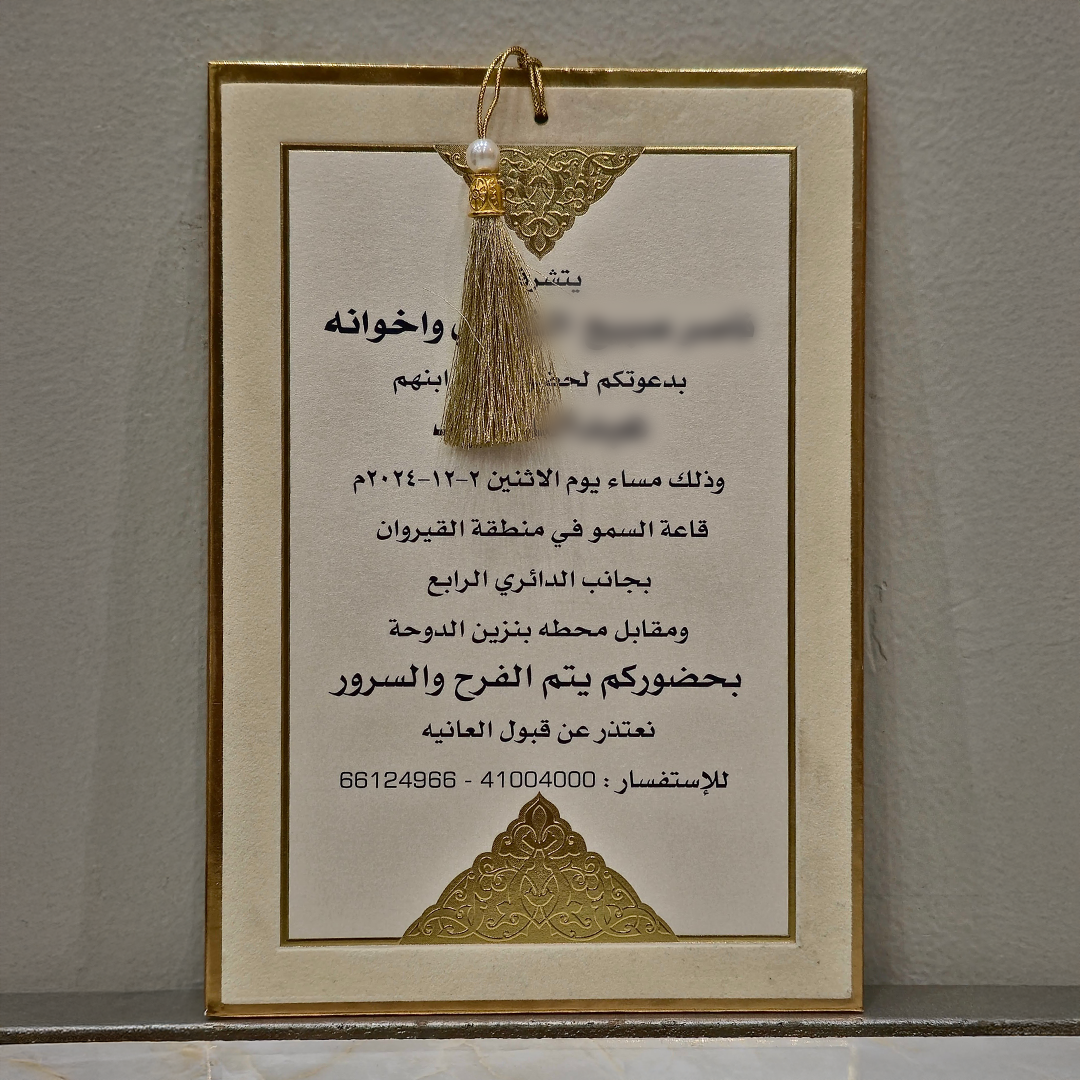 يتشرف
واخوانه
بدعوتكم ابنهم
وذلك مساء يوم الاثنين ٢-١٢-٢٠٢٤م
قاعة السمو في منطقة القيروان
بجانب الدائري الرابع
ومقابل محطه بنزين الدوحة
بحضوركم يتم الفرح والسرور
نعتذر عن قبول العانيه
للإستفسار : 41004000 - 66124966